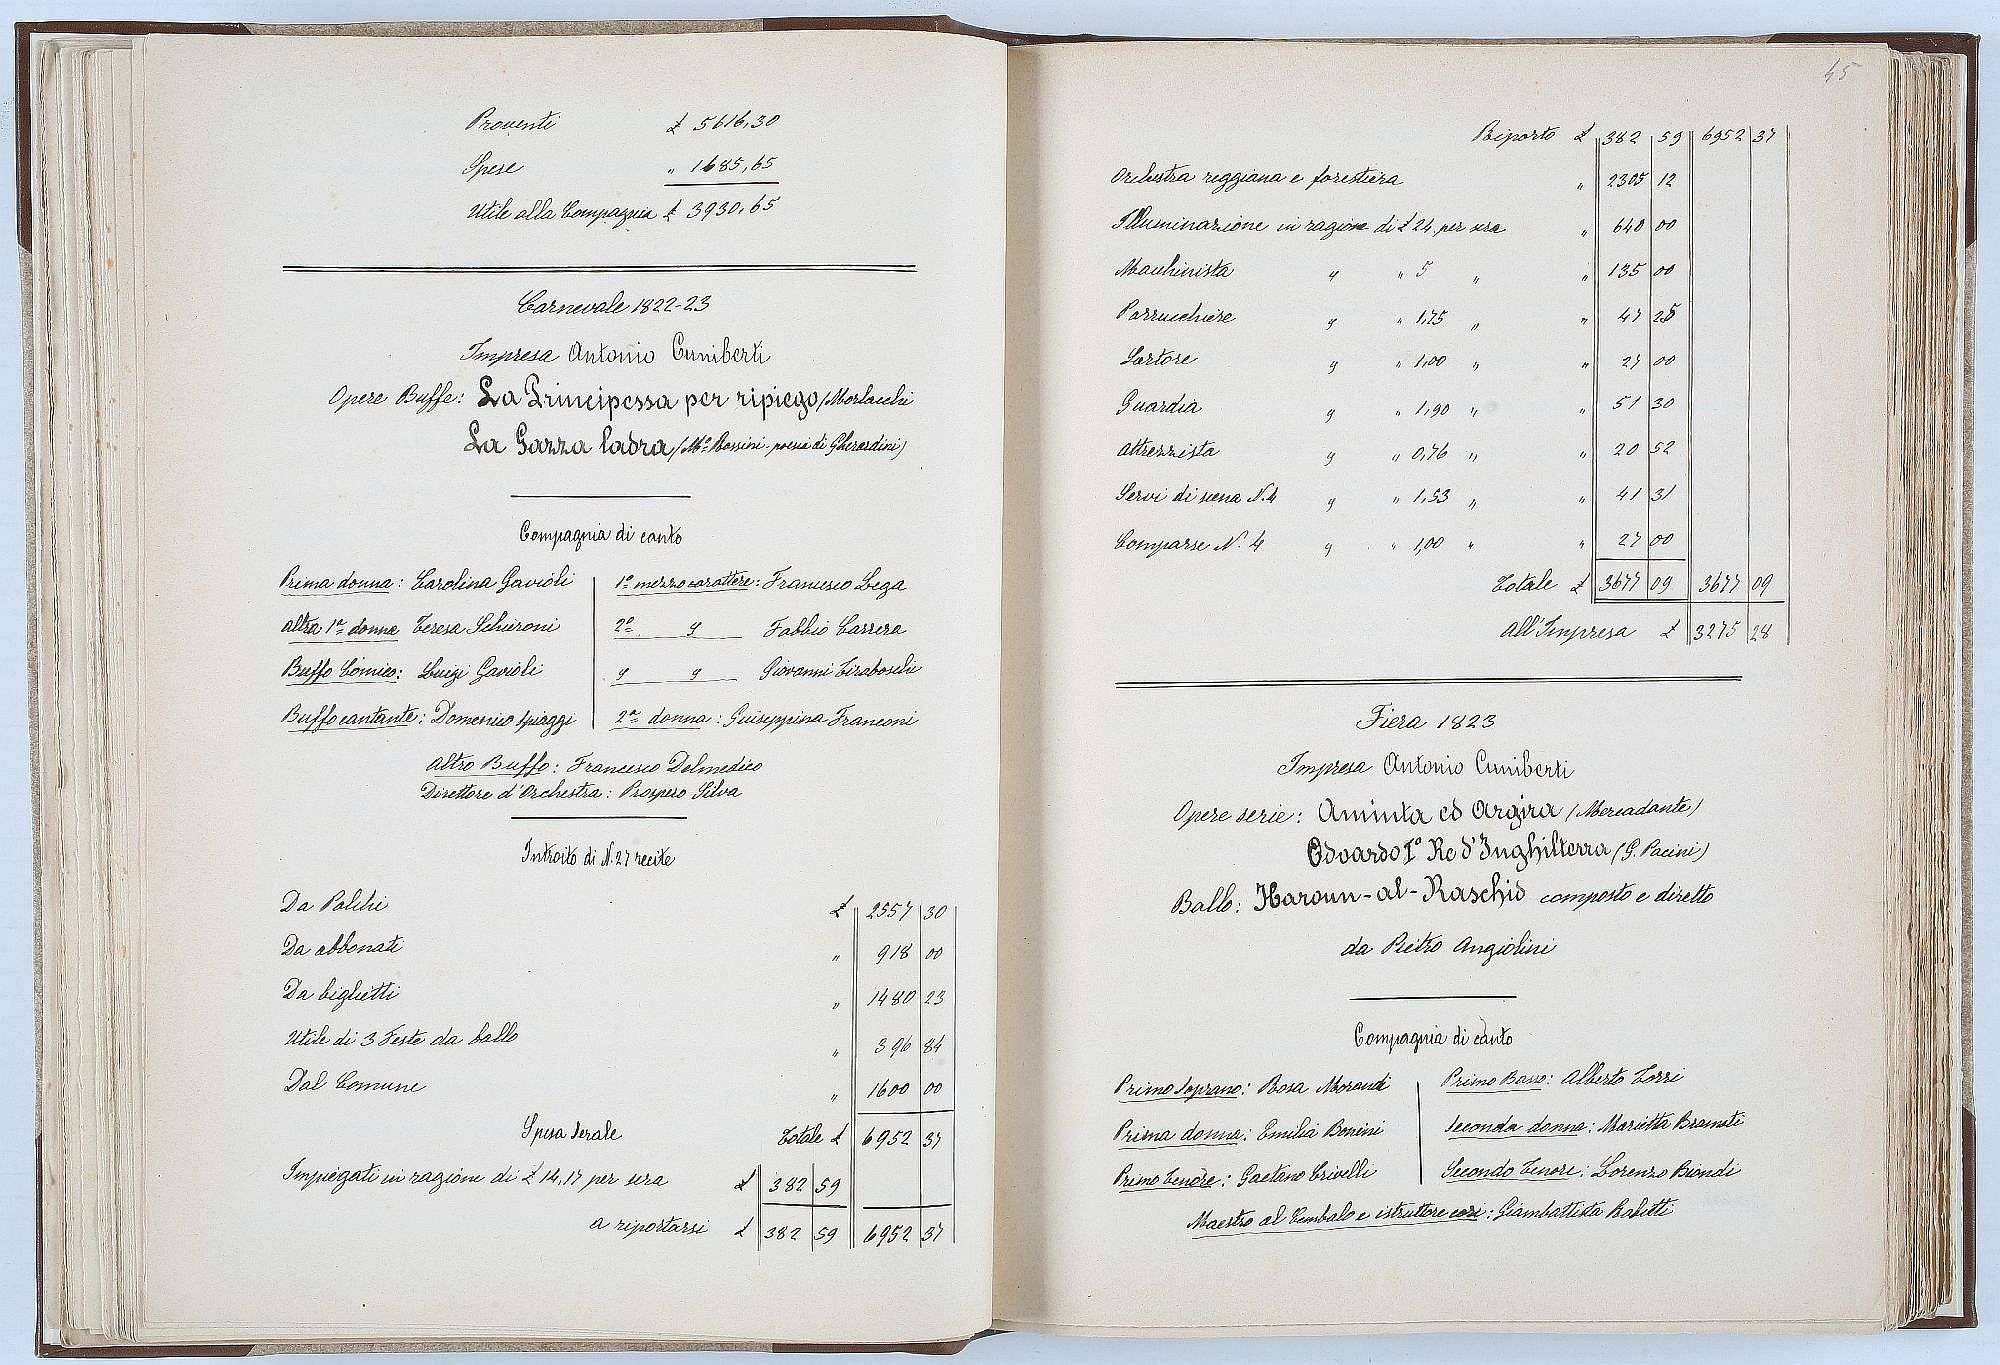 Proventi £ 5616,30
Spese " 1685,65
Utile alla Compagnia £ 3930,65
Carnevale 1822-23
Impresa Antonio Cuniberti
Opere Buffe: La Principessa per ripiego (Morlacchi
La Gazza ladra (Mº Rossini - poesia di Gherardini)
Compagnia di canto
Prima donna: Carolina Gavioli 1º mezzo carattere: Francesco Lega
altra 1ª donna Teresa Schieroni 2º " Fabbio Carrera
Buffo Comico: Luigi Gavioli " " Giovanni Tiraboschi
Buffo cantante: Domenico Spiaggi 2ª donna: Guiseppina Franconi
Altro Buffo: Francesco Delmedico
Direttore d'Orchestra: Prospero Silva
Introito di N. 27 recite
Da Palchi £ 2557 30
Da abbonati " 918 00
Da biglietti " 1480 23
Utile di 3 Feste da ballo " 396 84
Dal Comune " 1600 00
Spesa Serale Totale £ 6952 37
Impiegati in ragione di £ 14,17 per sera £ 382 59
a riportarsi £ 382 59 6952 37
45
Riporto £ 382 59 6952 37
Orchestra reggiana e forestiera " 2305 12
Illuminazione in ragione di £ 24 per sera " 640 00
Macchinista " " 5 " " 135 00
Parrucchiere " " 1,75 " " 47 25
Sartore " " 1,00 " " 27 00
Guardia " " 1,90 " " 51 30
Attrezzista " " 0,76 " " 20 52
Servi di scena N. 4 " " 1,53 " " 41 31
Comparse N. 4 " " 1,00 " " 27 00
Totale £ 3677 09 3677 09
All'Impresa £ 3275 28
Fiera 1823
Impresa Antonio Cuniberti
Opere serie: Aminta ed Argira (Mercadante)
Odoardo Iº Re d'Inghilterra (G. Pacini)
Ballo: Haroun-al-Raschid composto e diretto
da Pietro Angiolini
Compagnia di canto
Primo Soprano: Rosa Morandi Primo Basso: Alberto Torri
Prima donna: Emilia Bonini Seconda donna: Marietta Bramati
Primo Tenore: Gaetano Crivelli Secondo Tenore: Lorenzo Biondi
Maestro al Cembalo e istruttore cori: Giambattista Rabitti